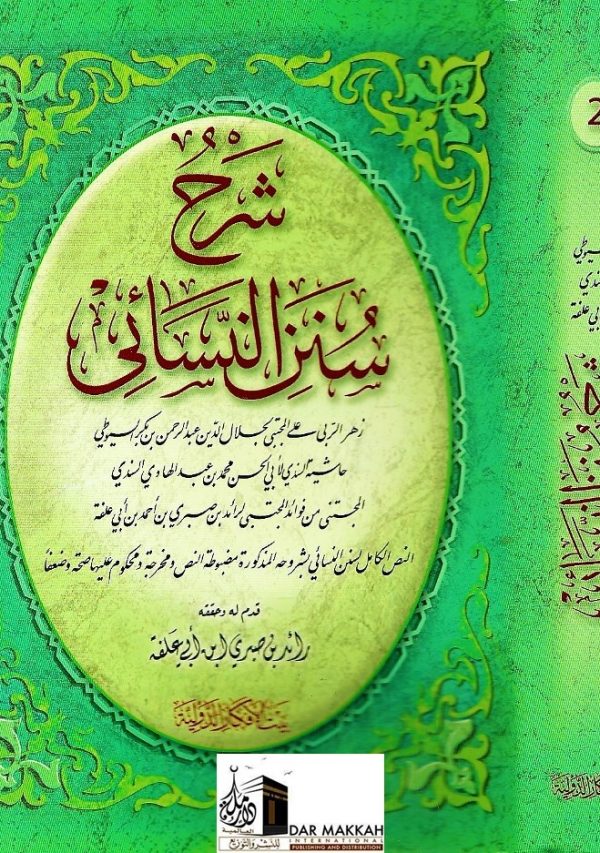 شَرْحُ
سُنَنِ النَّسَائِيِّ
زهر الربى على المجتبى لجلال الدين عبد الرحمن بن بكر السيوطي
حاشية السندي لأبي الحسن محمد بن عبد الهادي السندي
المجتنى من فوائد المجتبى لرائد بن صبري بن أحمد بن أبي علفة
النص الكامل لسنن النسائي بشروحه المذكورة مضبوطة النص ومخرجة ومحكوم عليها صحة وضعفا
قدم له وحققه
رائد بن صبري ابن أبي علفة
بيت الأفكار الدولية
دار مكة
العالمية
للنشر والتوزيع
DAR MAKKAH
INTERNATIONAL
PUBLISHING AND DISTRIBUTION
2
السيوطي
السندي
أبي علفة